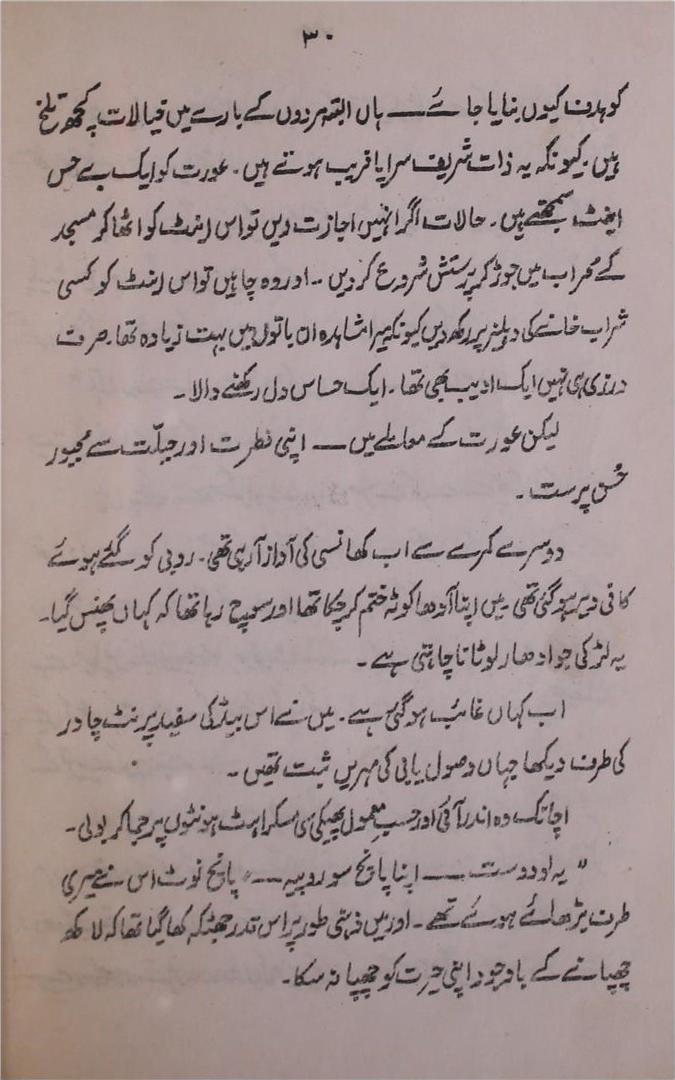 ۳۰
کو ہدف کیوں بنایا جائے ــــ ہاں البتہ مردوں کے بارے میں خیالات کچھ تلخ
ہیں۔ کیونکہ یہ ذات شریف سراپا فریب ہوتے ہیں۔ عورت کو ایک بے حس
اینٹ سمجھتے ہیں۔ حالات اگر انہیں اجازت دیں تو اس اینٹ کو اٹھا کر مسجد
کے محراب میں جوڑ کر پرستش شروع کر دیں۔۔ اور وہ چاہیں تو اس اینٹ کو کسی
شراب خانے کی دہلیز پر رکھ دیں کیونکہ میرا مشاہدہ ان باتوں میں بہت زیادہ تھا۔ صرف
درزی ہی نہیں ایک ادیب بھی تھا۔ ایک حساس دل رکھنے والا۔
لیکن عورت کے معاملے میں ــــ اپنی فطرت اور جبلّت سے مجبور
حُسن پرست۔
دوسرے کمرے سے اب کھانسی کی آواز آ رہی تھی۔ روبی کو گئے ہوئے
کافی دیر ہو گئی تھی میں اپنا آدھا کوٹہ ختم کر چکا تھا اور سوچ رہا تھا کہ کہاں پھنس گیا۔
یہ لڑکی جو ادھار لوٹانا چاہتی ہے۔
اب کہاں غائب ہو گئی ہے۔ میں نے اس بیڈ کی سفید پرنٹ چادر
کی طرف دیکھا جہاں وصول یابی کی مہریں ثبت تھیں۔
اچانک وہ اندر آئی اور حسبِ معمول پھیکی سی مسکراہٹ ہونٹوں پر جما کر بولی۔
"یہ لو دوست ــــ اپنا پانچ سو روپیہ ــــ" پانچ نوٹ اس نے میری
طرف بڑھائے ہوئے تھے۔ اور میں ذہنی طور پر اس قدر جھٹکہ کھا گیا تھا کہ لاکھ
چھپانے کے باوجود اپنی حیرت کو چھپا نہ سکا۔